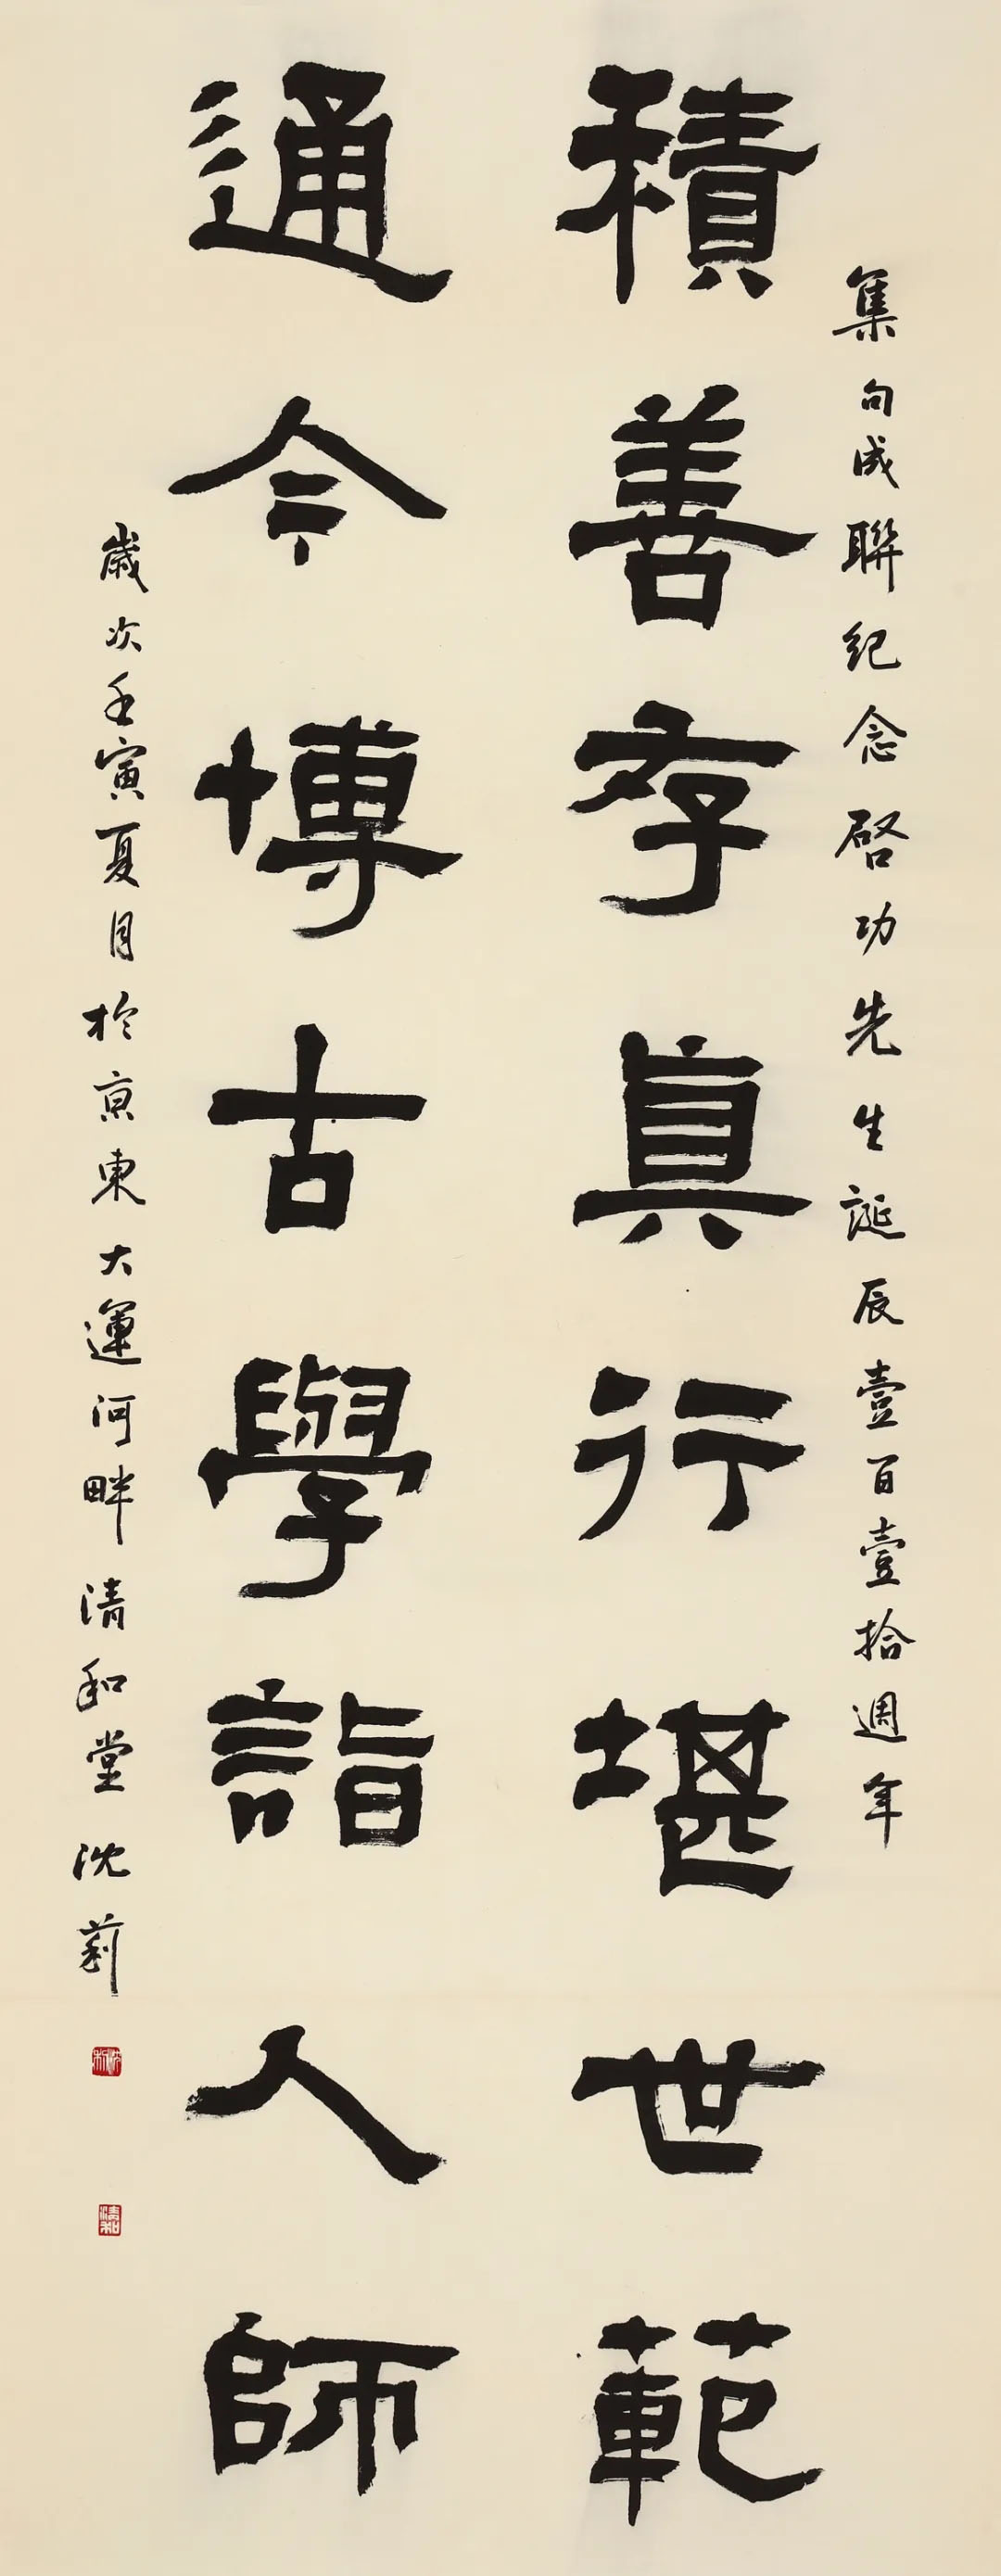 集句成聯紀念啓功先生誕辰壹百壹拾週年
積善存真行堪世範
通今博古學詣人師
歲次壬寅夏月於京東大運河畔清和堂沈莉
清和